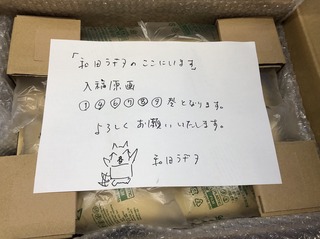 「和田ラヂヲのここにいます」
入稿原画
①④⑥⑦⑧⑨巻となります。
よろしくお願いいたします。
和田ラヂヲ